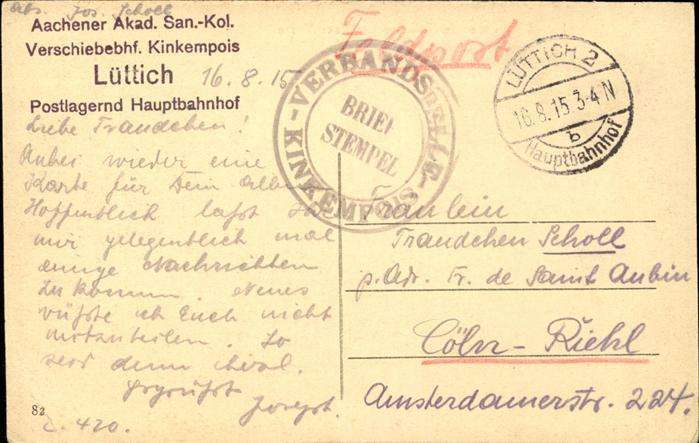 Abs. Jos. Scholl
Aachener Akad. San.-Kol.
Verschiebebhf. Kinkempois
Lüttich
Postlagernd Hauptbahnhof
16.8.15
Feldpost
VERBANDSTELLE
BRIEF
STEMPEL
KINKEMPOIS
LÜTTICH 2
16.8.15 3-4 N
b
Hauptbahnhof
Liebe Traudchen!
Anbei wieder eine
Karte für Dein Album
Hoffentlich laßt Ihr
mir gelegentlich mal
einige Nachrichten
zukommen. Neues
wüßte ich Euch nicht
mitzuteilen. So
seid denn
gegrüßt
Joseph.
Fräulein
Traudchen Scholl
p. Adr. Fr. de Saint Aubin
Cöln-Riehl
Amsterdamerstr. 224.
82
2. 420.